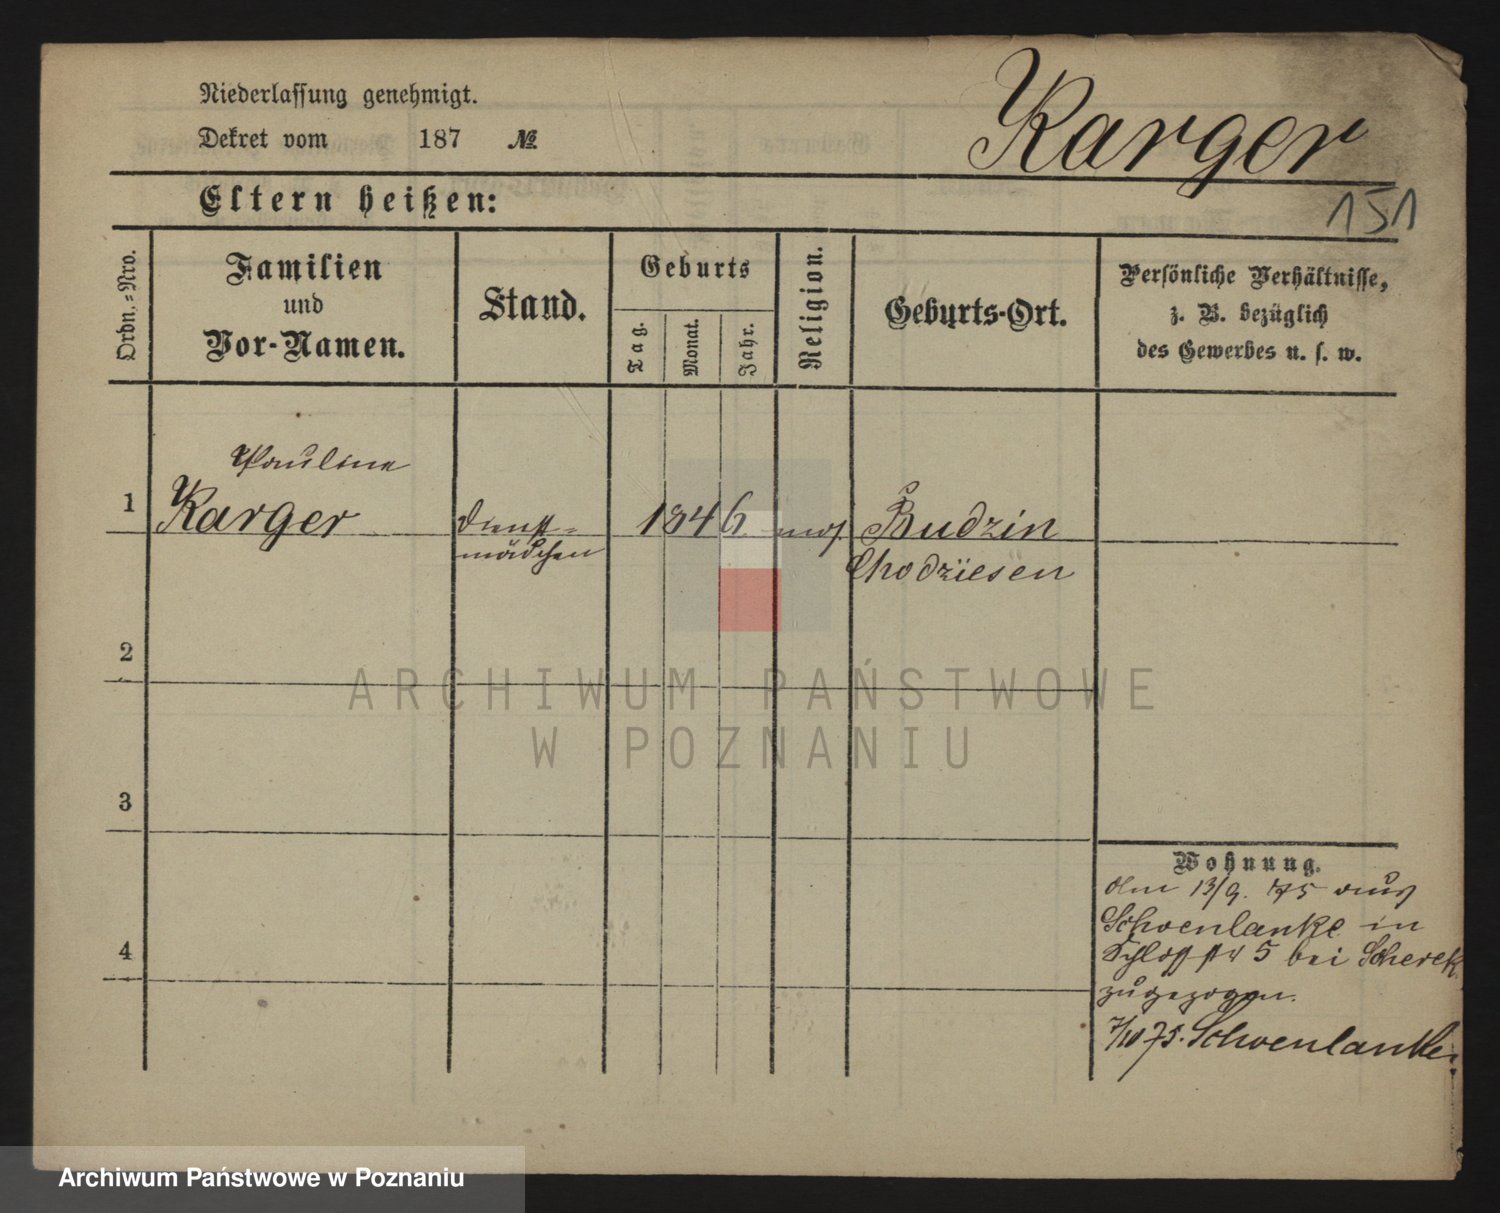 Niederlassung genehmigt.
Dekret vom 187 №
Karger
151
Eltern heißen:
Ordn.-Nro.
Familien
und
Vor-Namen.
Stand.
Geburts
Tag.
Monat.
Jahr.
Religion.
Geburts-Ort.
Persönliche Verhältnisse,
z. B. bezüglich
des Gewerbes u. s. w.
Pauline
1 Karger Dienst- 1846 mos. Budzin
mädchen Chodziesen
2
3
4
ARCHIWUM PAŃSTWOWE
W POZNANIU
Wohnung.
Am 13/9. 75 aus
Schoenlanke in
Schloßstr 5 bei Scherek
zugezogen.
7/10 75. Schoenlanke.
Archiwum Państwowe w Poznaniu